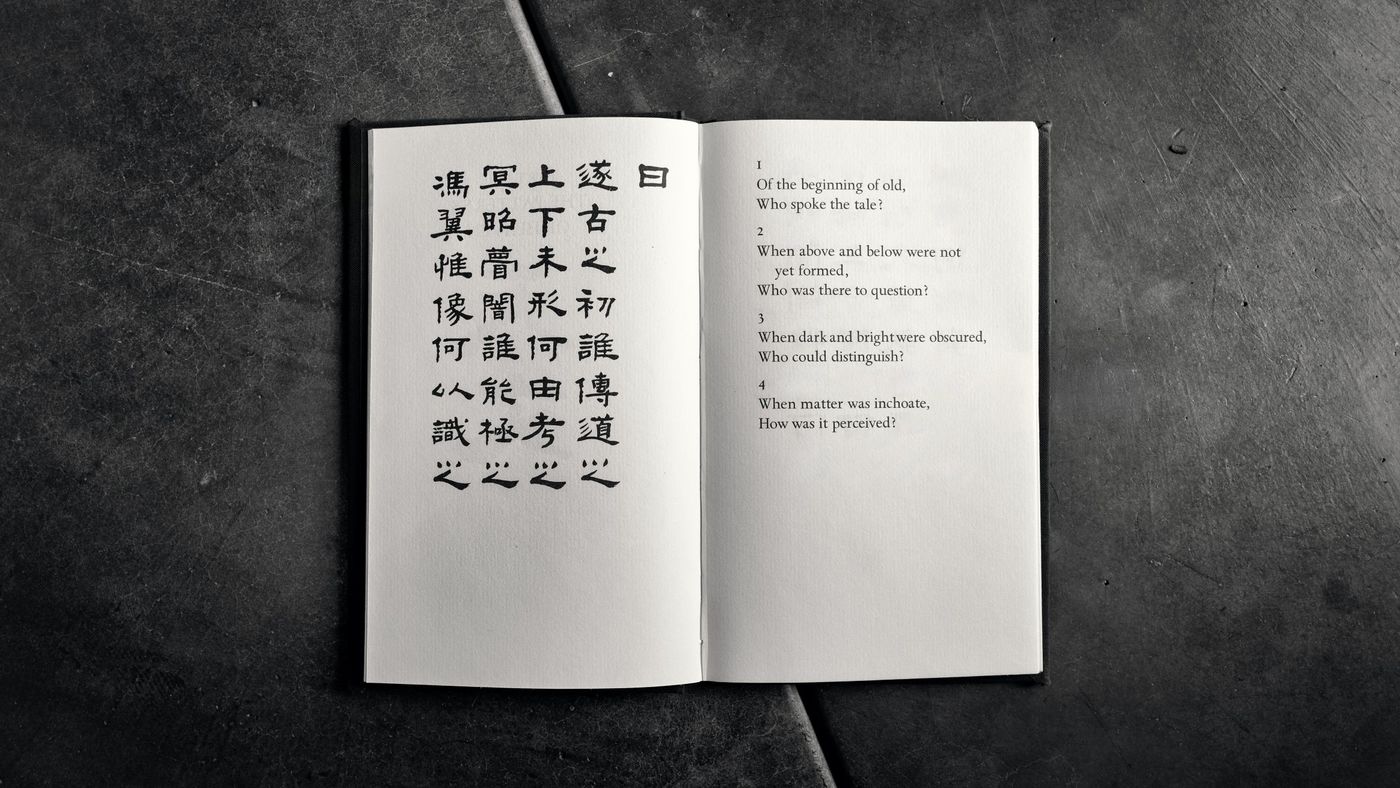 曰
遂古之初誰傳道之
上下未形何由考之
冥昭瞢闇誰能極之
馮翼惟像何以識之
1
Of the beginning of old,
Who spoke the tale?
2
When above and below were not
yet formed,
Who was there to question?
3
When dark and bright were obscured,
Who could distinguish?
4
When matter was inchoate,
How was it perceived?